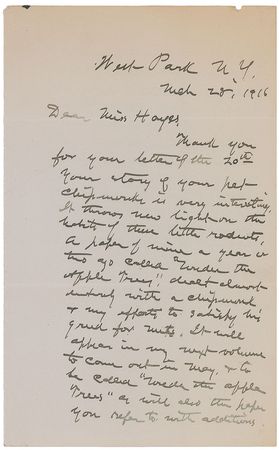 West Park N.Y.
Mch 28, 1916
Dear Miss Hayes,
Thank you
for your letter of the 20th
Your story of your pet
chipmunks is very interesting
It throws new light on the
habits of these little rodents.
A paper of mine a year or
two ago called "Under the
Apple Trees", dealt almost
entirely with a chipmunk
& my efforts to satisfy his
greed for nuts. It will
appear in my next volume
to come out in May, & to
be called "Under the Apple
Trees" as will also the paper
you refer to with additions.